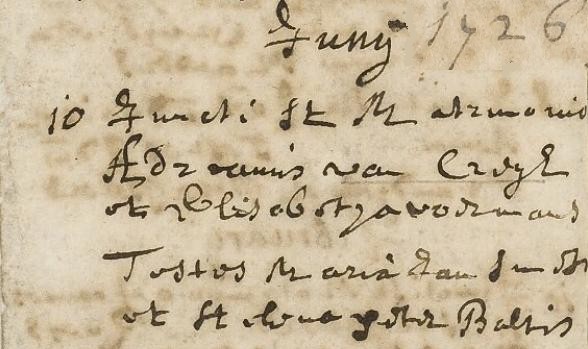 Juny 1726
10 Juncti st Matrimonio
Adrianus van Creyl
et Elisabetha voermans
Testes Maria Jan Smits
et Helena peter Baltis